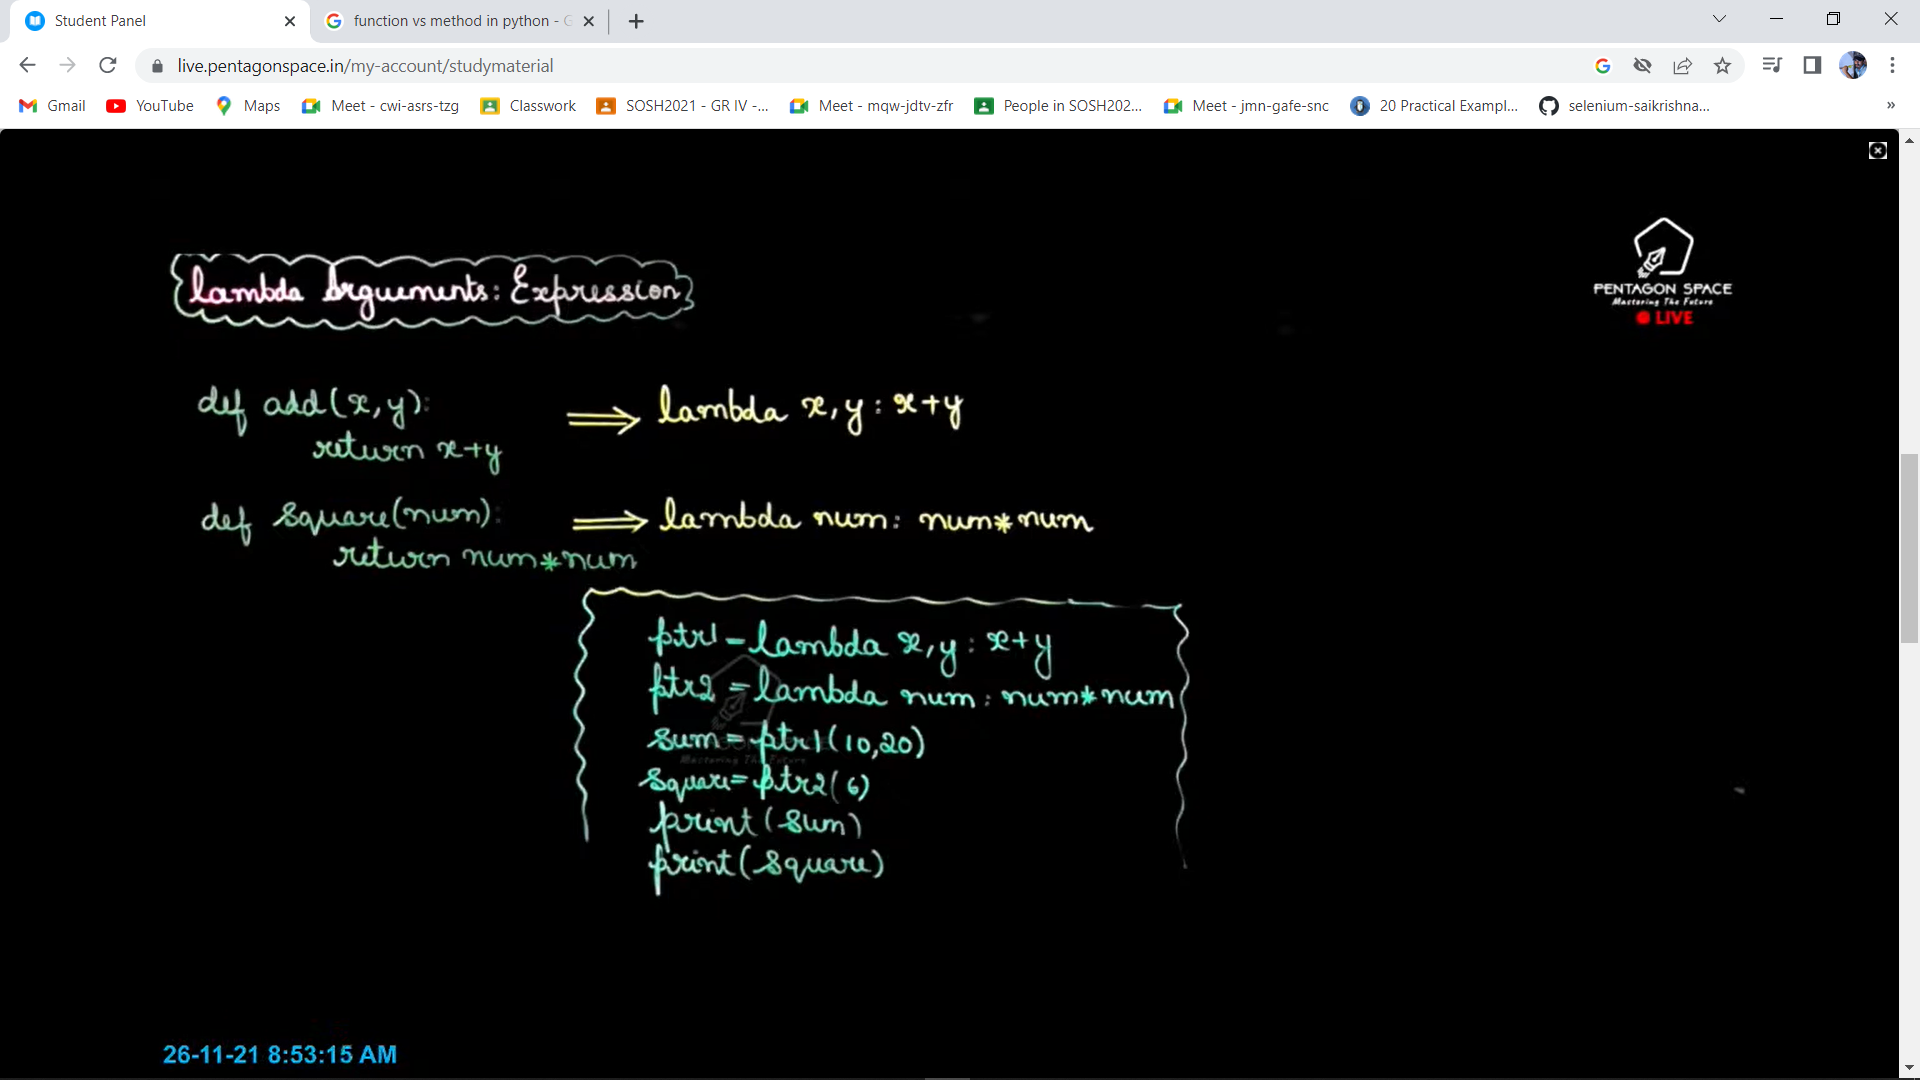 Student Panel
function vs method in python - G
live.pentagonspace.in/my-account/studymaterial
Gmail YouTube Maps Meet - cwi-asrs-tzg Classwork SOSH2021 - GR IV -... Meet - mqw-jdtv-zfr People in SOSH202... Meet - jmn-gafe-snc 20 Practical Exampl... selenium-saikrishna... »
PENTAGON SPACE
Mastering The Future
LIVE
lambda Arguements: Expression
def add(x,y):
return x+y
⇒ lambda x,y: x+y
def square(num):
return num*num
⇒ lambda num: num*num
ptr1 = lambda x,y: x+y
ptr2 = lambda num: num*num
sum = ptr1(10,20)
Mastering The Future
square = ptr2(6)
print(sum)
print(square)
26-11-21 8:53:15 AM